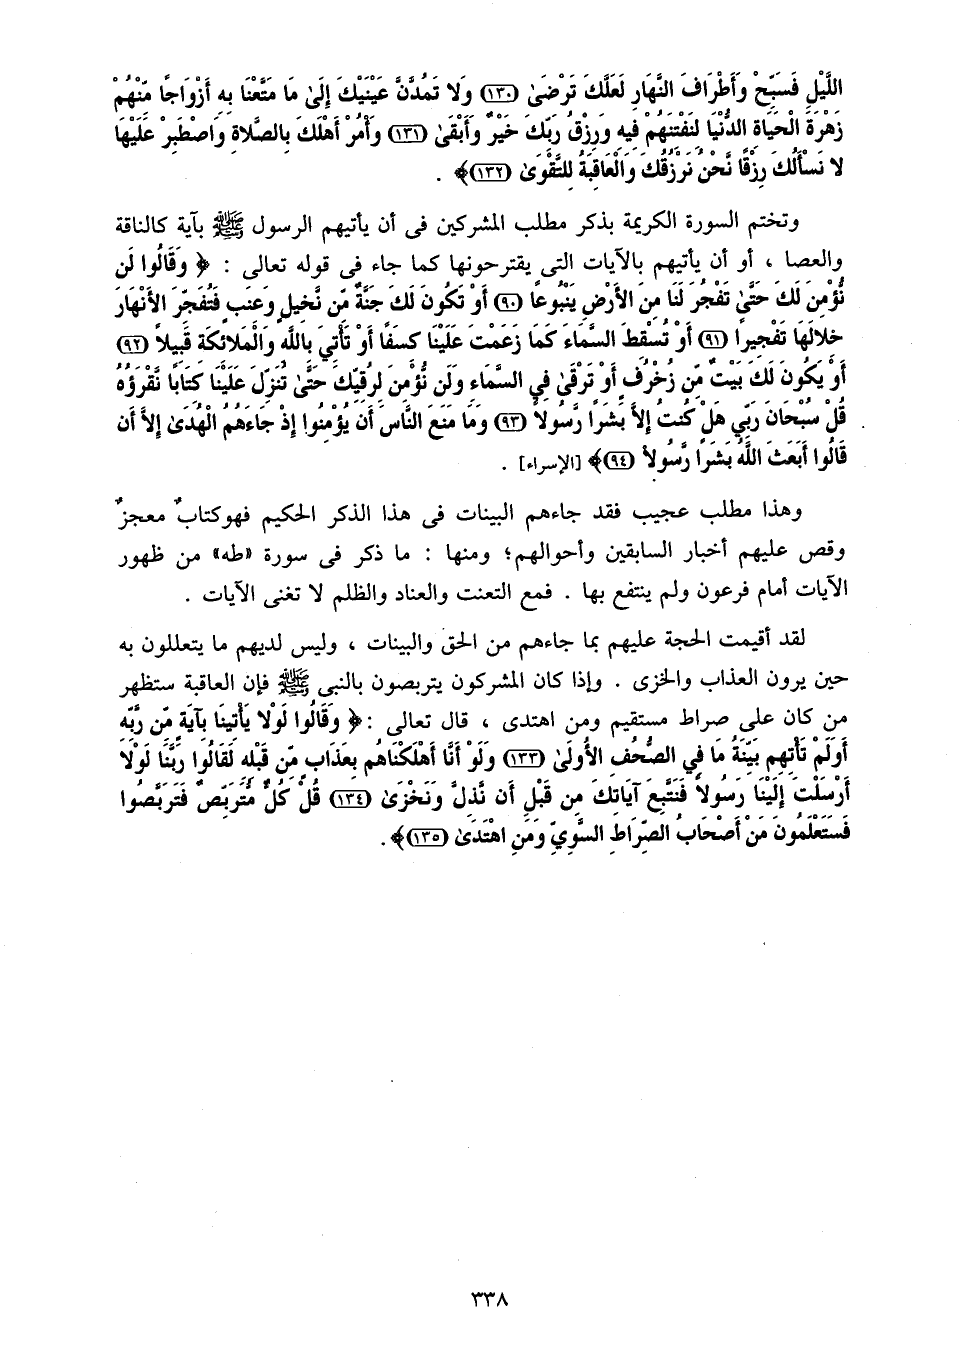 اللَّيْلِ فَسَبِّحْ وَأَطْرَافَ النَّهَارِ لَعَلَّكَ تَرْضَىٰ (١٣٠) وَلا تَمُدَّنَّ عَيْنَيْكَ إِلَىٰ مَا مَتَّعْنَا بِهِ أَزْوَاجًا مِّنْهُمْ
زَهْرَةَ الْحَيَاةِ الدُّنْيَا لِنَفْتِنَهُمْ فِيهِ وَرِزْقُ رَبِّكَ خَيْرٌ وَأَبْقَىٰ (١٣١) وَأْمُرْ أَهْلَكَ بِالصَّلاةِ وَاصْطَبِرْ عَلَيْهَا
لا نَسْأَلُكَ رِزْقًا نَّحْنُ نَرْزُقُكَ وَالْعَاقِبَةُ لِلتَّقْوَىٰ (١٣٢)﴾ .
وتختم السورة الكريمة بذكر مطلب المشركين فى أن يأتيهم الرسول ﷺ بآية كالناقة
والعصا ، أو أن يأتيهم بالآيات التى يقترحونها كما جاء فى قوله تعالى : ﴿ وَقَالُوا لَن
نُّؤْمِنَ لَكَ حَتَّىٰ تَفْجُرَ لَنَا مِنَ الأَرْضِ يَنْبُوعًا (٩٠) أَوْ تَكُونَ لَكَ جَنَّةٌ مِّن نَّخِيلٍ وَعِنَبٍ فَتُفَجِّرَ الأَنْهَارَ
خِلالَهَا تَفْجِيرًا (٩١) أَوْ تُسْقِطَ السَّمَاءَ كَمَا زَعَمْتَ عَلَيْنَا كِسَفًا أَوْ تَأْتِيَ بِاللَّهِ وَالْمَلائِكَةِ قَبِيلاً (٩٢)
أَوْ يَكُونَ لَكَ بَيْتٌ مِّن زُخْرُفٍ أَوْ تَرْقَىٰ فِي السَّمَاءِ وَلَن نُّؤْمِنَ لِرُقِيِّكَ حَتَّىٰ تُنَزِّلَ عَلَيْنَا كِتَابًا نَّقْرَؤُهُ
قُلْ سُبْحَانَ رَبِّي هَلْ كُنتُ إِلاَّ بَشَرًا رَّسُولاً (٩٣) وَمَا مَنَعَ النَّاسَ أَن يُؤْمِنُوا إِذْ جَاءَهُمُ الْهُدَىٰ إِلاَّ أَن
قَالُوا أَبَعَثَ اللَّهُ بَشَرًا رَّسُولاً (٩٤)﴾ [الإسراء] .
وهذا مطلب عجيب فقد جاءهم البينات فى هذا الذكر الحكيم فهوكتابٌ معجزٌ
وقص عليهم أخبار السابقين وأحوالهم؛ ومنها : ما ذكر فى سورة «طه» من ظهور
الآيات أمام فرعون ولم ينتفع بها . فمع التعنت والعناد والظلم لا تغنى الآيات .
لقد أقيمت الحجة عليهم بما جاءهم من الحق والبينات ، وليس لديهم ما يتعللون به
حين يرون العذاب والخزى . وإذا كان المشركون يتربصون بالنبى ﷺ فإن العاقبة ستظهر
من كان على صراط مستقيم ومن اهتدى ، قال تعالى :﴿ وَقَالُوا لَوْلا يَأْتِينَا بِآيَةٍ مِّن رَّبِّهِ
أَوَلَمْ تَأْتِهِم بَيِّنَةُ مَا فِي الصُّحُفِ الأُولَىٰ (١٣٣) وَلَوْ أَنَّا أَهْلَكْنَاهُم بِعَذَابٍ مِّن قَبْلِهِ لَقَالُوا رَبَّنَا لَوْلا
أَرْسَلْتَ إِلَيْنَا رَسُولاً فَنَتَّبِعَ آيَاتِكَ مِن قَبْلِ أَن نَّذِلَّ وَنَخْزَىٰ (١٣٤) قُلْ كُلٌّ مُّتَرَبِّصٌ فَتَرَبَّصُوا
فَسَتَعْلَمُونَ مَنْ أَصْحَابُ الصِّرَاطِ السَّوِيِّ وَمَنِ اهْتَدَىٰ (١٣٥)﴾.
٣٣٨